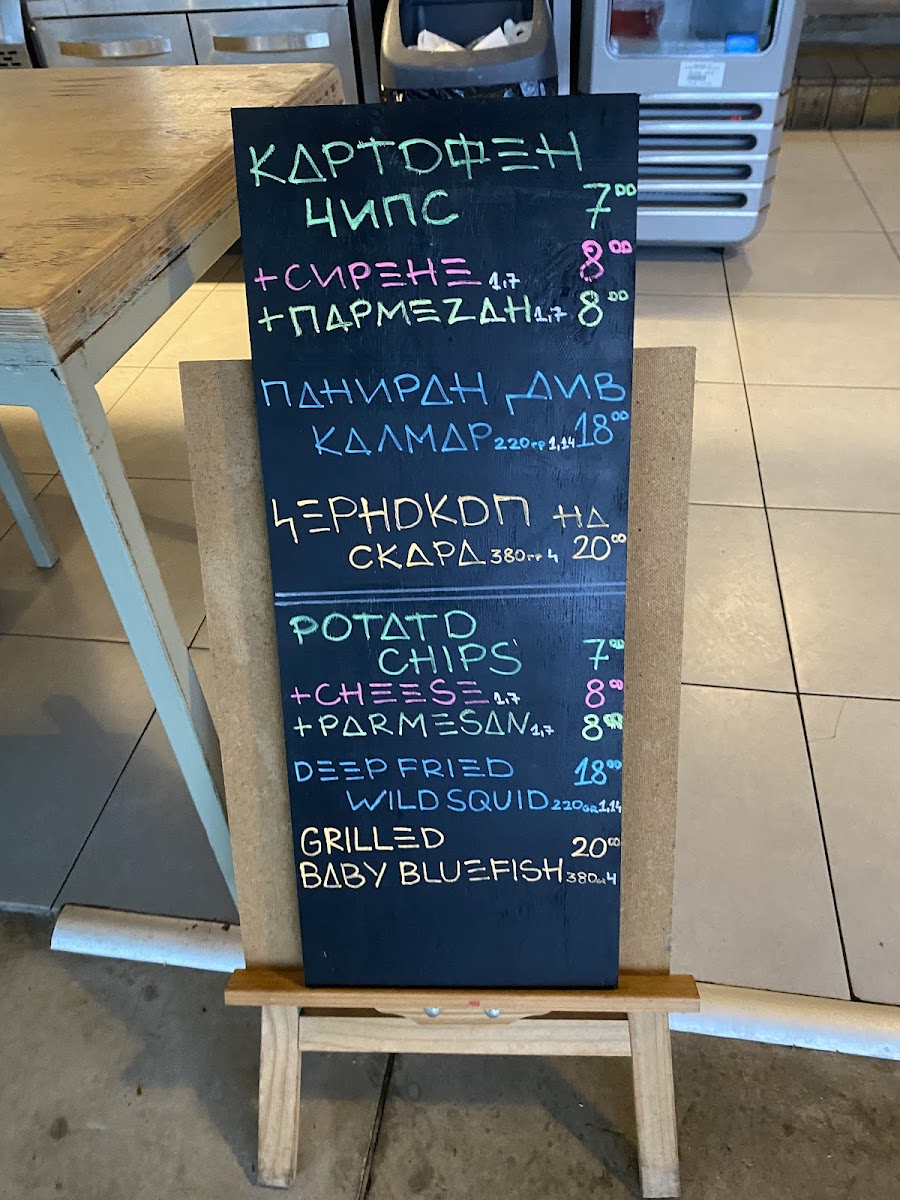 КАРТОФЕН
ЧИПС 7.00
+СИРЕНЕ 1,7 8.00
+ПАРМЕZАН 1,7 8.00
ПАНИРАН ДИВ
КАЛМАР 220гр 1,14 18.00
ЧЕРНОКОП НА
СКАРА 380гр 4 20.00
POTATO
CHIPS 7.00
+CHEESE 1,7 8.00
+PARMESAN 1,7 8.00
DEEP FRIED 18.00
WILD SQUID 220GR 1,14
GRILLED 20.00
BABY BLUEFISH 380GR 4